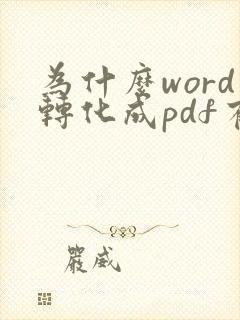 為什麼word
轉化成pdf
嚴威